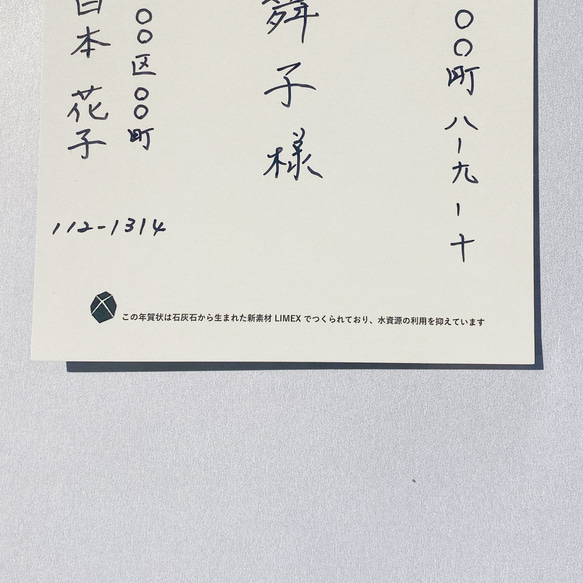 〇〇町 八-九-十
舞子様
〇〇区〇〇町
日本 花子
112-1314
この年賀状は石灰石から生まれた新素材 LIMEX でつくられており、水資源の利用を抑えています